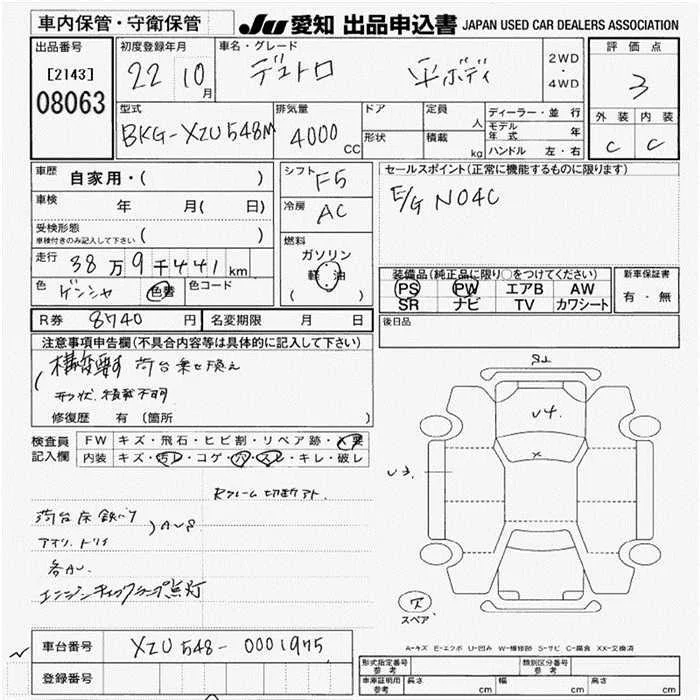 車内保管・守衛保管 JU 愛知 出品申込書 JAPAN USED CAR DEALERS ASSOCIATION
出品番号 初度登録年月 車名・グレード 2WD・4WD 評価点
[2143] 22 10月 デュトロ 平ボディ 3
08063
型式 排気量 ドア 定員 人 ディーラー・並行 外装 内装
BKG-XZU548M 4000 CC 形状 積載 kg モデル年式 年 C C
ハンドル 左・右
車歴 自家用・( ) シフト F5 セールスポイント(正常に機能するものに限ります)
車検 年 月( 日) 冷房 AC E/G N04C
受検形態 ( )
車検付きのみ記入して下さい
走行 38万9千441km 燃料 ガソリン 軽油 ( )
色 ゲンシャ 色替 色コード
装備品(純正品に限り○をつけてください) 新車保証書
PS PW エアB AW 有・無
SR ナビ TV カワシート
R券 8740円 名変期限 月 日 後日品
注意事項申告欄(不具合内容等は具体的に記入して下さい)
構変要す 荷台乗せ換え
形状、積載不明
修復歴 有 (箇所 )
検査員記入欄 FW キズ・飛石・ヒビ割・リペア跡・X要
内装 キズ・汚レ・コゲ・穴・スレ・キレ・破レ
Rフレーム切断アト
荷台床鉄バリ
アオリ、トリイ )AUS
各AU
エンジンチェックランプ点灯
U4
x
U3
スペア
A-キズ E-エクボ U-凹み W-補修跡 S-サビ C-腐食 XX-交換済
車台番号 XZU548-0001975
登録番号
形式指定番号 参考 類別区分番号 参考
車庫証明用 参考 長さ cm 幅 cm 高さ cm